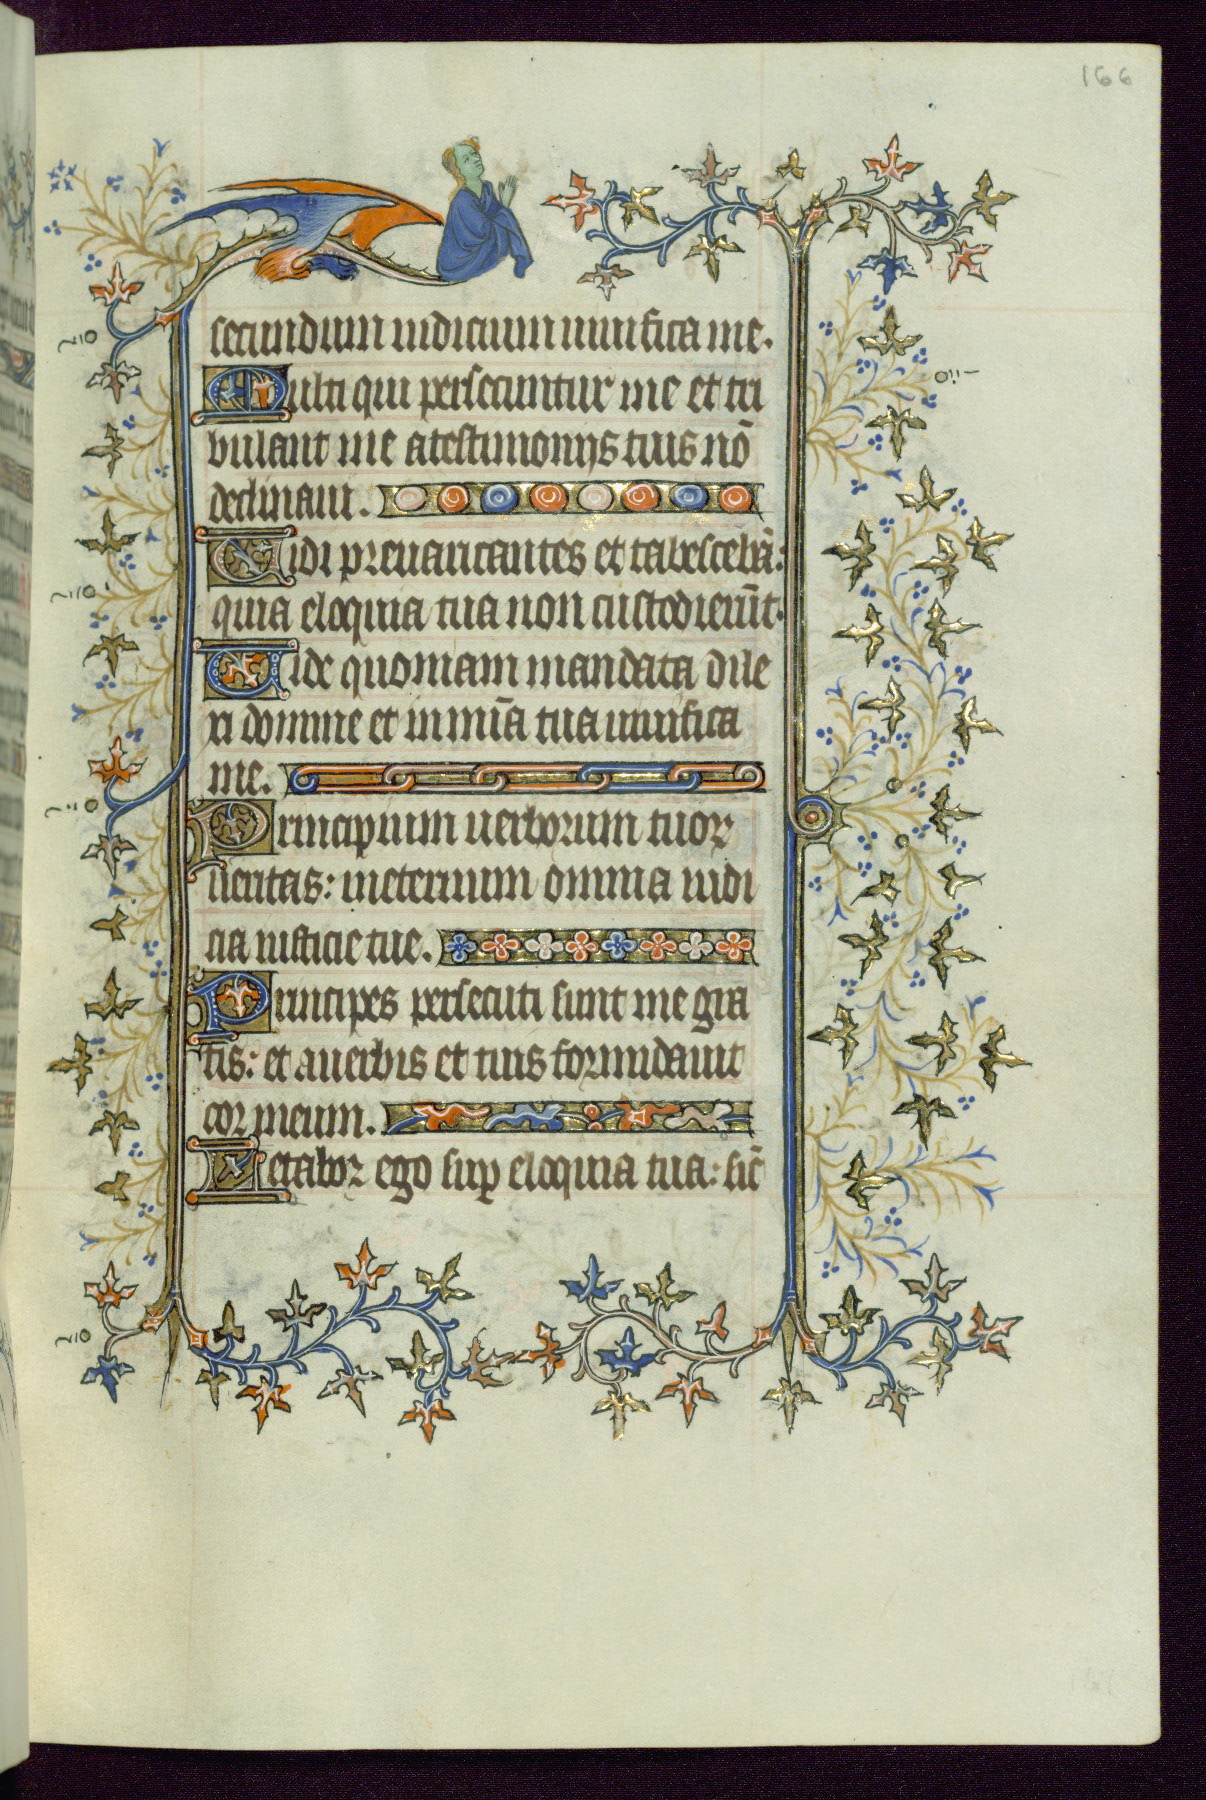 166
secundum iudicium uiuifica me.
Multi qui persecuntur me et tri
bulant me a testimonijs tuis nō
declinaui.
Uidi preuaricantes et tabescebā:
quia eloquia tua non custodierūt.
Uide quoniam mandata dile
xi domine et in mīa tua uiuifica
me.
Principium uerborum tuor
ueritas: in eternum omnia iudi
cia iusticie tue.
Principes persecuti sunt me gra
tis: et a uerbis et tuis formidauit
cor meum.
Letabor ego sup eloquia tua: sic̄